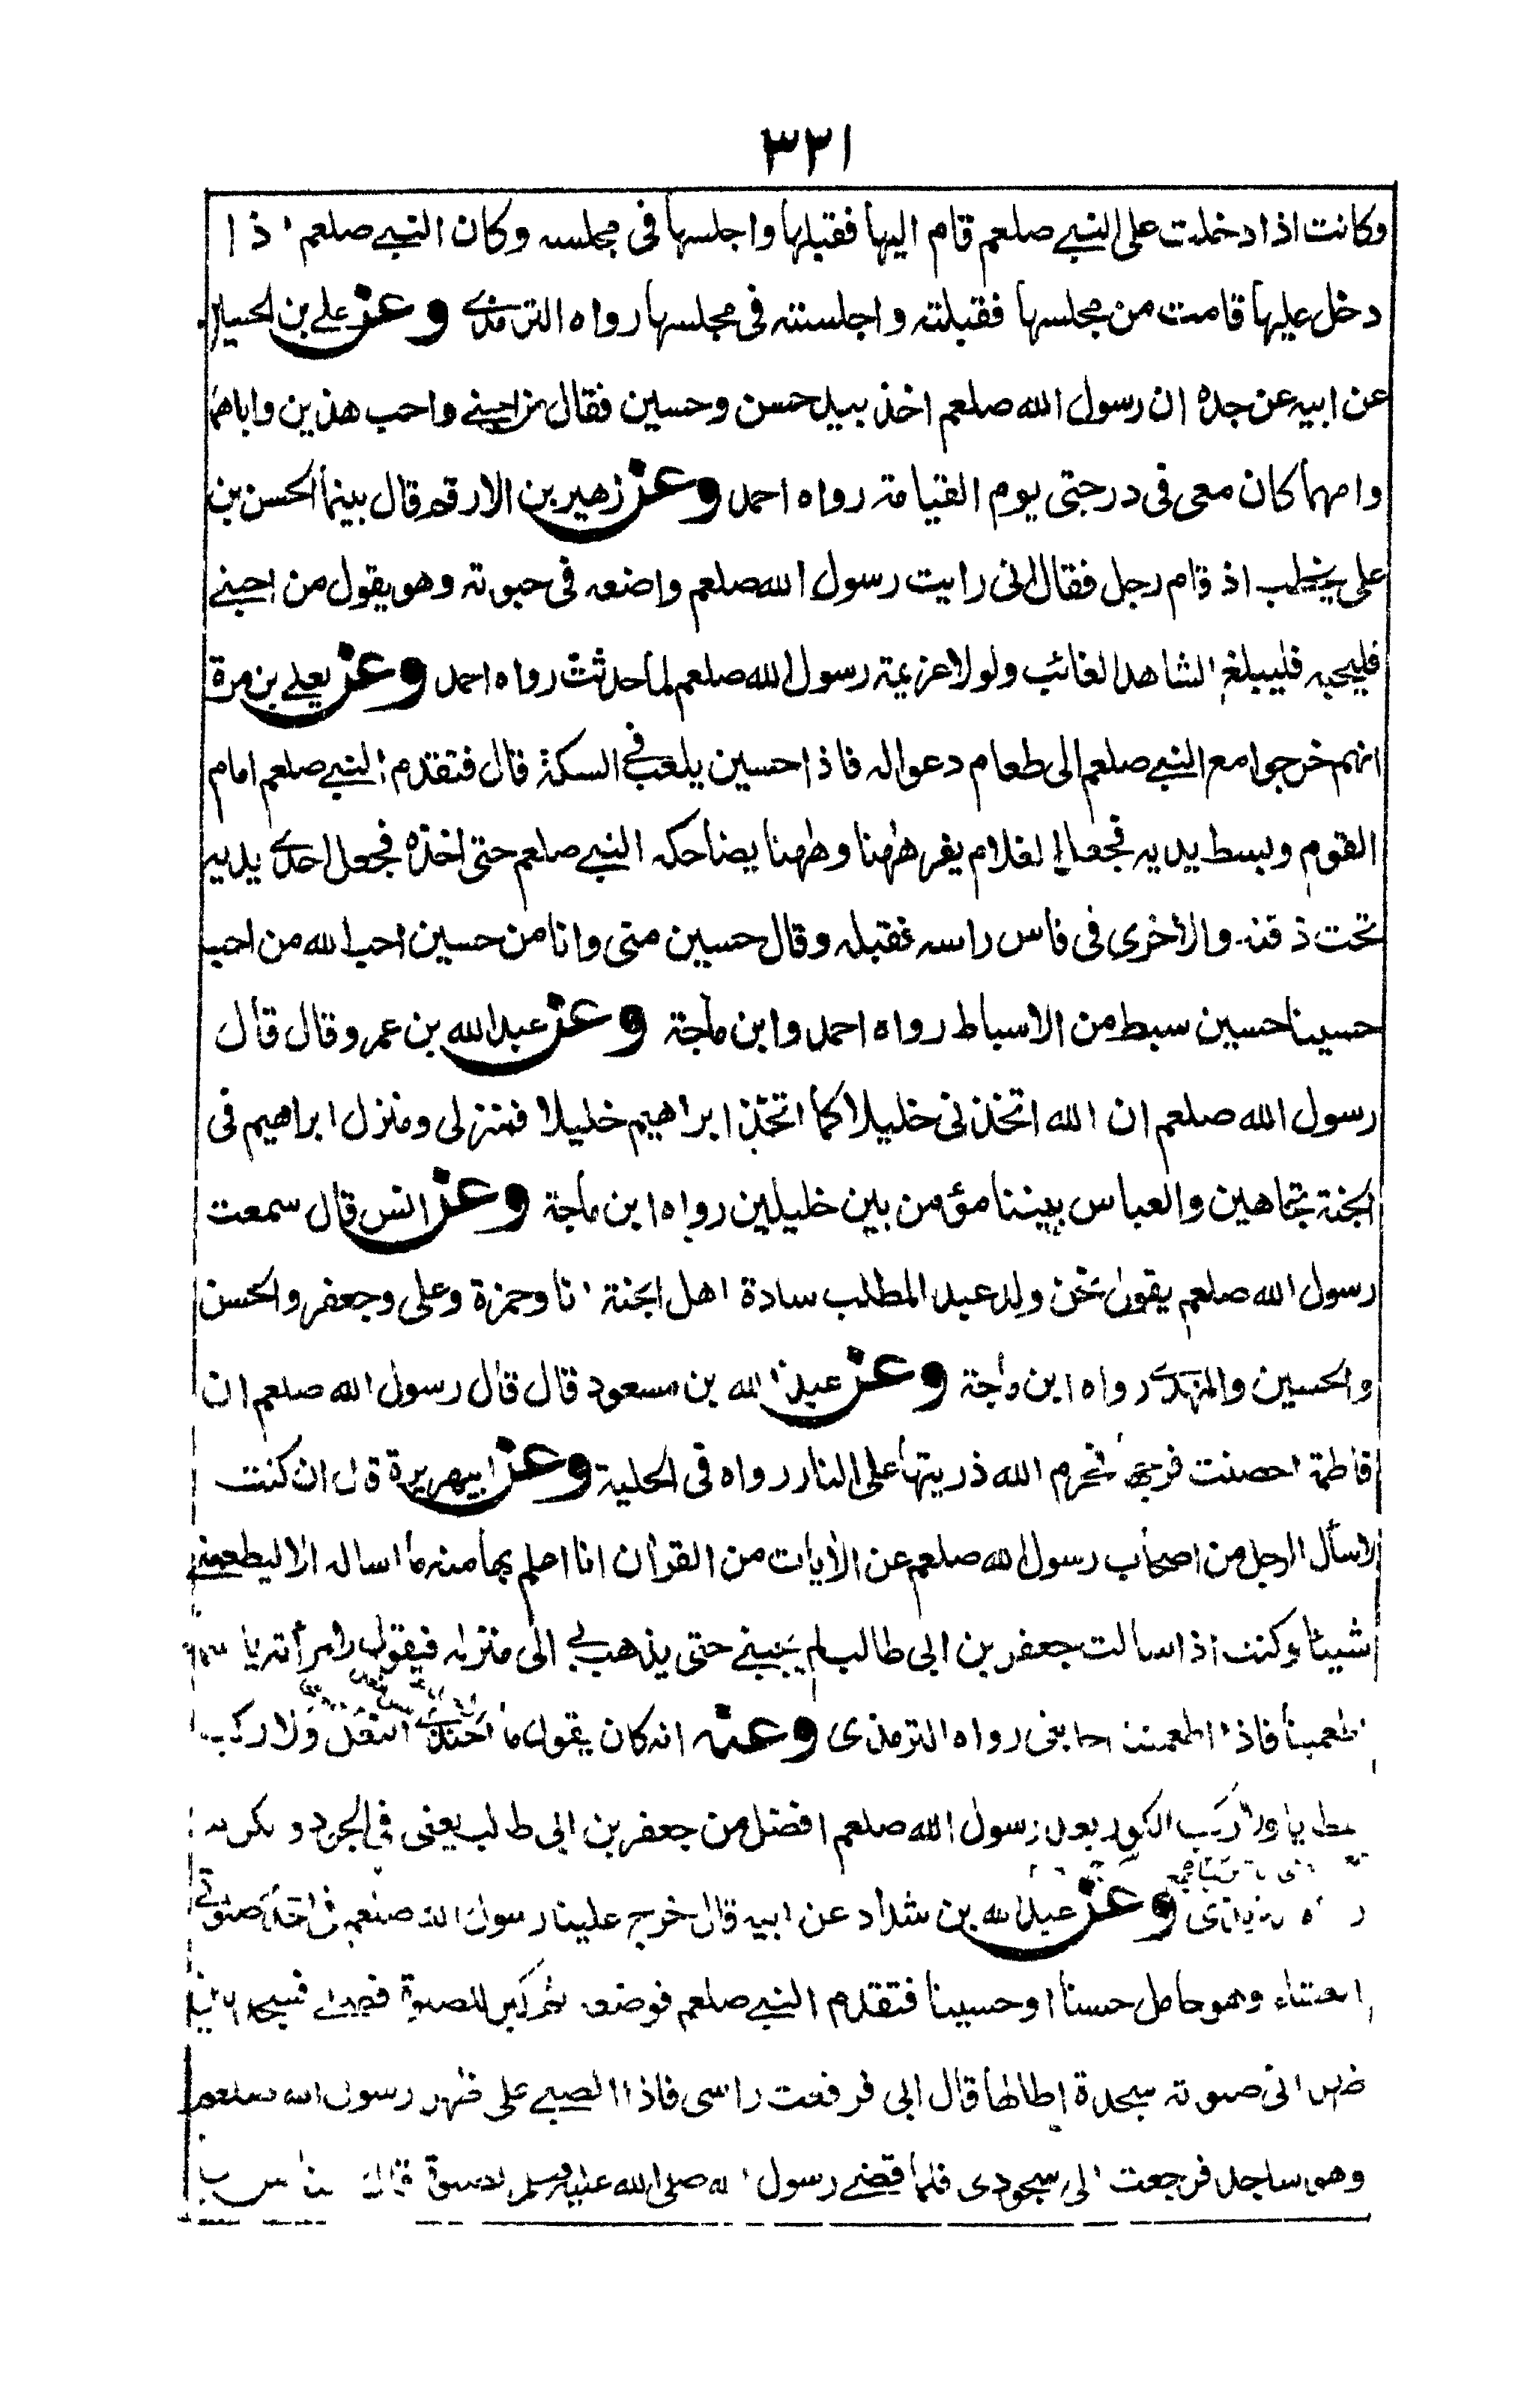 ٣٢١
وكانت اذا دخلت على النبى صلعم قام اليها فقبلها واجلسها فى مجلسه وكان النبى صلعم اذا
دخل عليها قامت من مجلسها فقبلته واجلسته فى مجلسها رواه الترمذى وعن على بن الحسين
عن ابيه عن جده ان رسول الله صلعم اخذ بيد حسن وحسين فقال من احبنى واحب هذين واباهما
وامهما كان معى فى درجتى يوم القيامة رواه احمد وعن زهير بن الارقم قال بينما الحسن بن
على يخطب اذ قام رجل فقال انى رايت رسول الله صلعم واضعه فى حبوته وهو يقول من احبنى
فليحبه فليبلغ الشاهد الغائب ولولا عزيمة رسول الله صلعم لما حدثت رواه احمد وعن يعلى بن مرة
انهم خرجوا مع النبى صلعم الى طعام دعوا له فاذا حسين يلعب فى السكة قال فتقدم النبى صلعم امام
القوم وبسط يديه فجعل الغلام يفر ههنا وههنا يضاحكه النبى صلعم حتى اخذه فجعل احدى يديه
تحت ذقنه والاخرى فى فاس راسه فقبله وقال حسين منى وانا من حسين احب الله من احب
حسينا حسين سبط من الاسباط رواه احمد وابن ماجة وعن عبد الله بن عمرو قال قال
رسول الله صلعم ان الله اتخذنى خليلا كما اتخذ ابراهيم خليلا فمنزلى ومنزل ابراهيم فى
الجنة تجاهين والعباس بيننا مؤمن بين خليلين رواه ابن ماجة وعن انس قال سمعت
رسول الله صلعم يقول نحن ولد عبد المطلب سادة اهل الجنة انا وحمزة وعلى وجعفر والحسن
والحسين والمهدى رواه ابن ماجة وعن عبد الله بن مسعود قال قال رسول الله صلعم ان
فاطمة احصنت فرجها فحرم الله ذريتها على النار رواه فى الحلية وعن ابيهريرة قال ان كنت
لاسأل الرجل من اصحاب رسول الله صلعم عن الايات من القرأن انا اعلم بها منه ما اساله الا ليطعمنى
شيئا وكنت اذا سالت جعفر بن ابى طالب لم يجبنى حتى يذهب بى الى منزله فيقول لامرأته يا
اطعمينا فاذا اطعمتنا اجابنى رواه الترمذى وعنه انه كان يقول ما احتذى النعال ولا ركب
المطايا ولا ركب الكور بعد رسول الله صلعم افضل من جعفر بن ابى طالب يعنى فى الجود والكرم
الترمذى وعن عبد الله بن شداد عن ابيه قال خرج علينا رسول الله صلعم فى احدى صلوتى
العشاء وهو حامل حسنا او حسينا فتقدم النبى صلعم فوضعه ثم كبر للصلوة فصلى فسجد
ظهرانى صلوته سجدة اطالها قال ابى فرفعت راسى فاذا الصبى على ظهر رسول الله صلعم
وهو ساجد فرجعت الى سجودى فلما قضى رسول الله صلى الله عليه وسلم الصلوة قال الناس يا